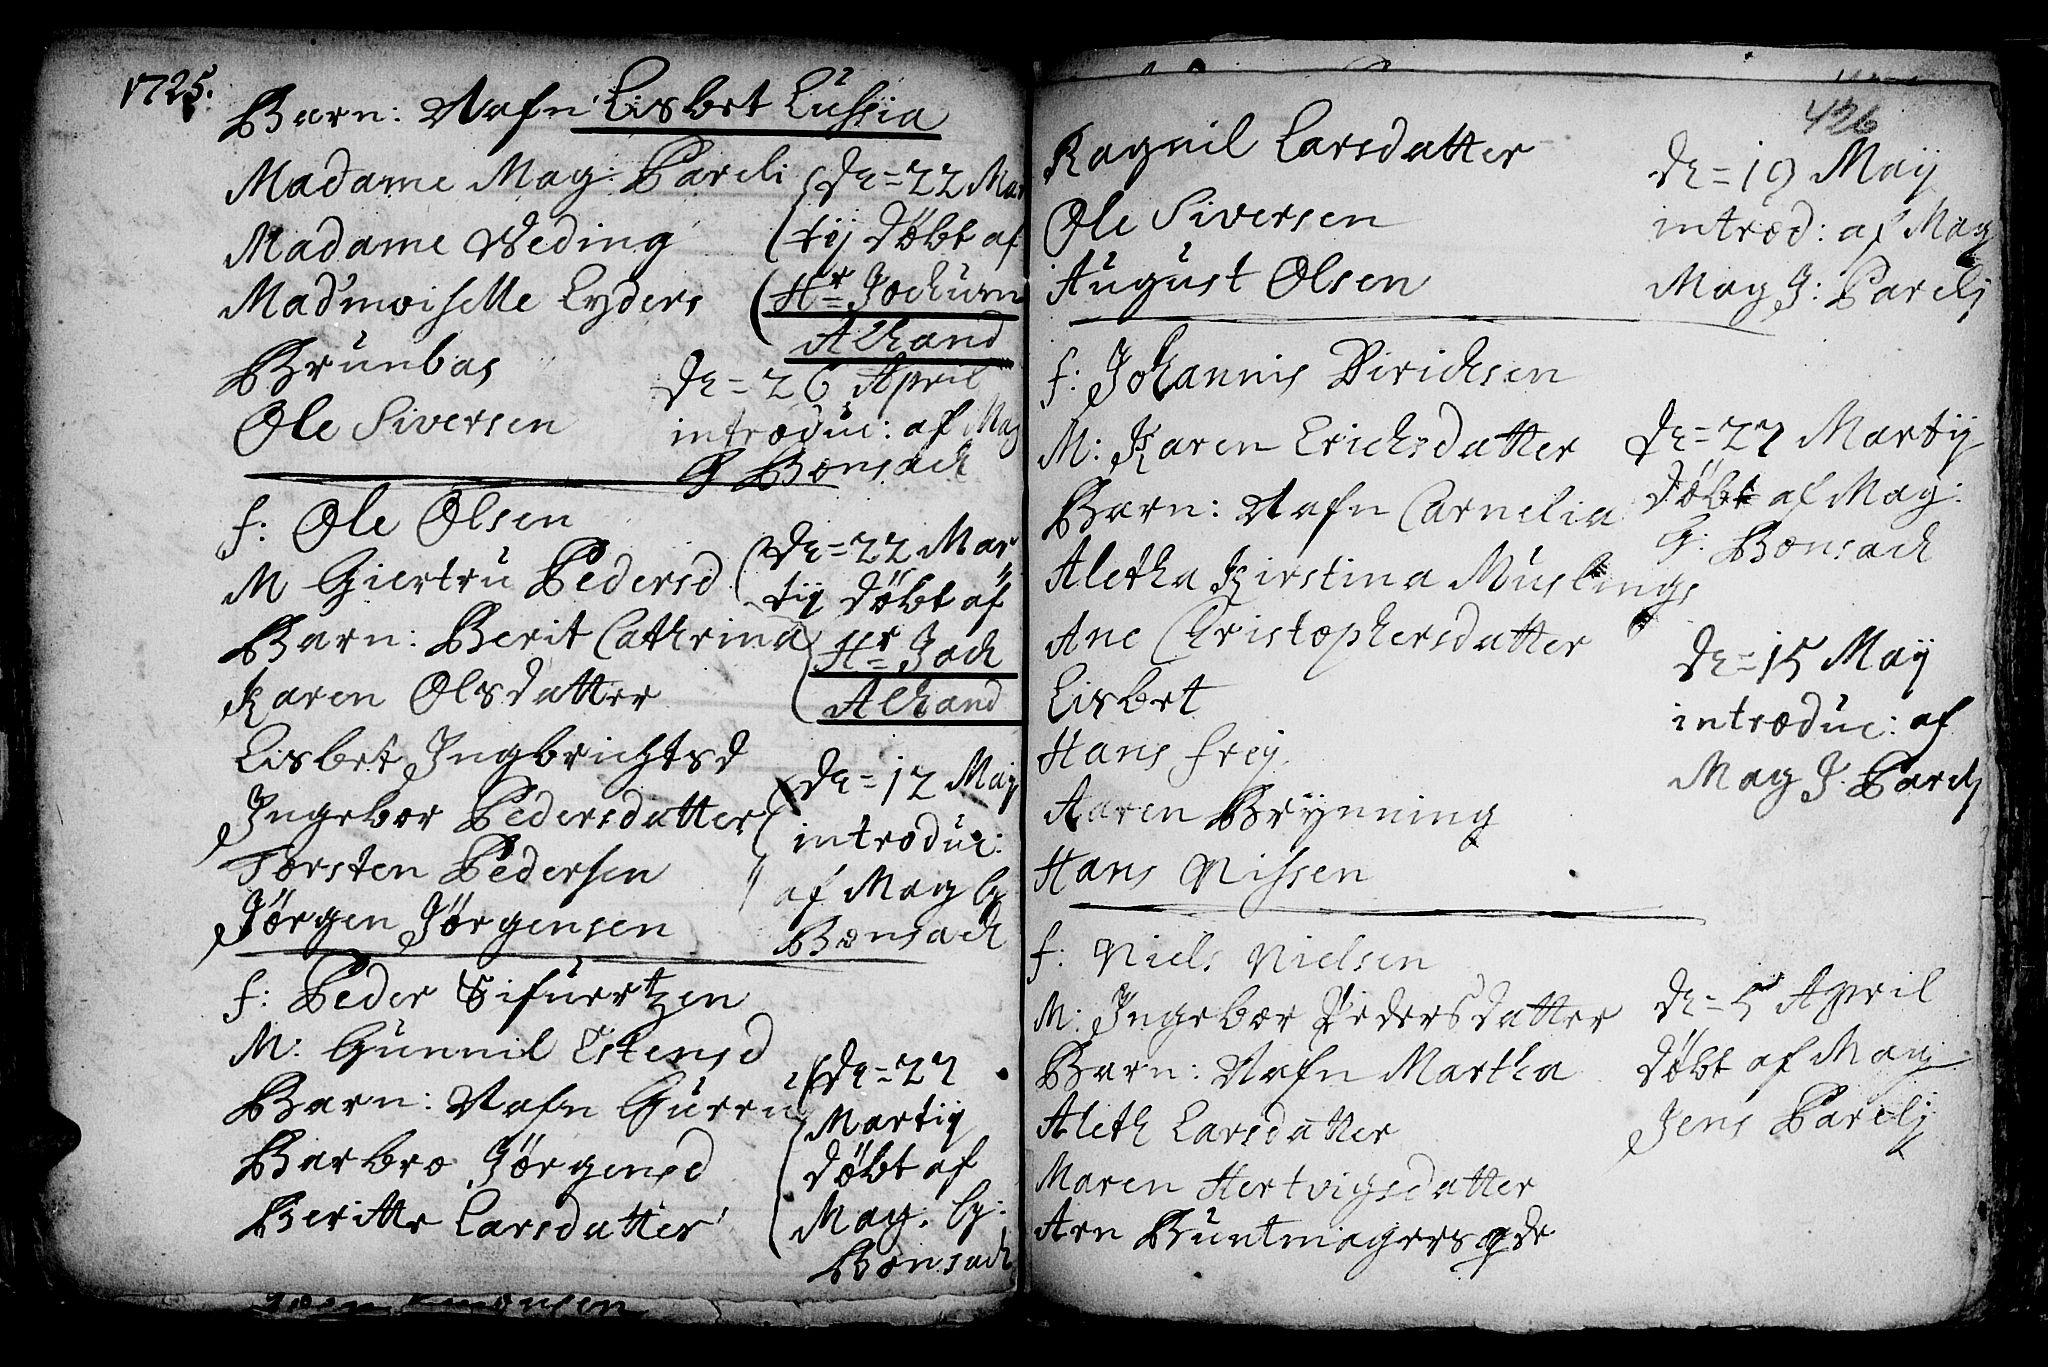 1725.
Barn: Nafn Lisbet Lussia
Madame Mag: Pareli
Madame Weding
Mad'moiselle Lyders
Brunbas
Ole Siversen
D= 22 Mar
tij døbt af
Hr Jochum
Alhand
D= 26 April
introduc: af Mag
G Bønsach
f: Ole Olsen
M Giertru Pedersd
Barn: Berit Cathrina
Karen Olsdatter
Lisbet Ingbrichtsd
Ingebor Pedersdatter
Torsten Pedersen
Jørgen Jørgensen
D= 22 Mar
tij døbt af
Hr Joch
Alhand
D= 12 Maij
introduc:
af Mag G
Bønsach
f: Peder Sifuertzen
M: Gunnil Estensd
Barn: Nafn Gurru
Barbro Jørgensd
Beritte Larsdatter
D= 27
Martij
døbt af
Mag. G:
Bønsach
426
Ragnil Larsdatter
Ole Siversen
August Olsen
D= 19 Maij
introd: af Mag
Mag J: Parelj
f: Johannis Dirichsen
M: Karen Erichsdatter
Barn: Nafn Carnelia
Aletha Kirstina Muslings
Ane Christophersdatter
Lisbet
Hans Frey
Karen Brynning
Hans Nissen
D= 27 Martij
døbt af Mag:
G: Bønsach
D= 15 Maij
introduc: af
Mag J Parelj
f: Niels Nielsen
M: Ingebor Pedersdatter
Barn: Nafn Martha
Aleth Larsdatter
Maren Hertvigsdatter
Arn Buntmagers
D= 5 April
døbt af Mag:
Jens Parelj